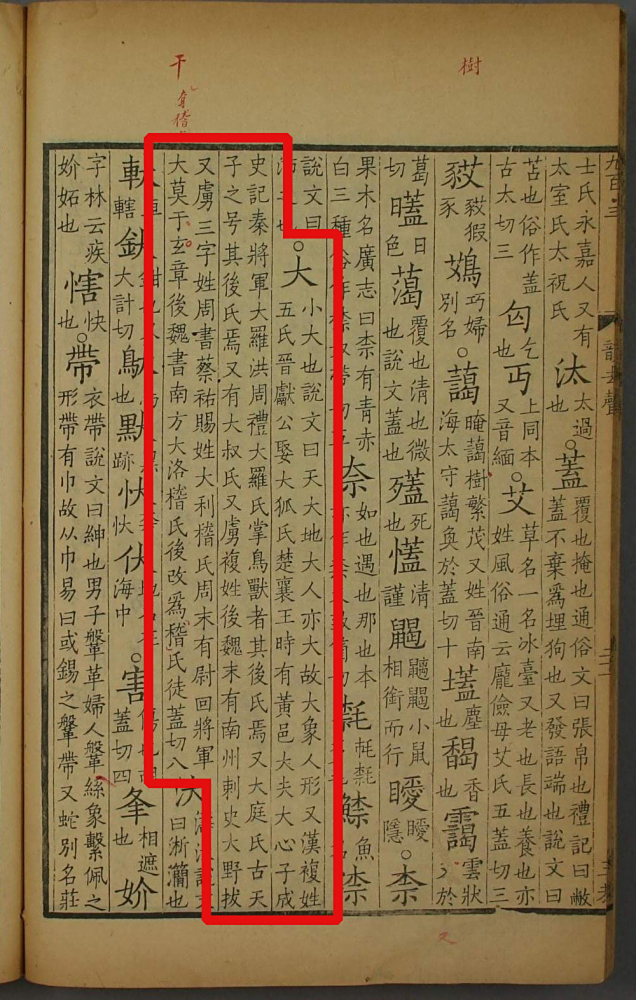 士氏永嘉人又有
太室氏太祝氏
汰
太過
也
蓋
覆也掩也通俗文曰張帛也禮記曰敝
蓋不棄爲埋狗也又發語端也說文曰
苫也俗作盖
古太切三
匃
乞
也
丐
上同本
又音緬
艾
草名一名冰臺又老也長也養也亦
姓風俗通云龐儉母艾氏五蓋切三
豭
豕
鴱
巧婦
別名
藹
晻藹樹繁茂又姓晉南
海太守藹奐於蓋切十
壒
塵
也
馤
香
也
靄
雲狀
於
葛
切
日
色
覆也清也微
也說文蓋也
死
也
清
謹
小鼠
相銜而行
曖
曖
隱
柰
果木名廣志曰柰有青赤
白三種俗作
奈
如也遇也那也本
魚
名
說文曰
大
小大也說文曰天大地大人亦大故大象人形又漢複姓
五氏晉獻公娶大狐氏楚襄王時有黃邑大夫大心子成
史記秦將軍大羅洪周禮大羅氏掌鳥獸者其後氏焉又大庭氏古天
子之号其後氏焉又有大叔氏又虜複姓後魏末有南州刺史大野拔
又虜三字姓周書蔡祐賜姓大利稽氏周末有尉回將軍
大莫于玄章後魏書南方大洛稽氏後改爲稽氏徒蓋切八
汏
曰淅灡也
軑
轄
釱
大計切
也
跡
忕
海中
害
傷也
蓋切四
夆
相遮
也
妎
字林云疾
妎妬也
愒
快
也
帶
衣帶說文曰紳也男子鞶革婦人鞶絲象繫佩之
形帶有巾故从巾易曰或錫之鞶帶又蛇別名莊
樹